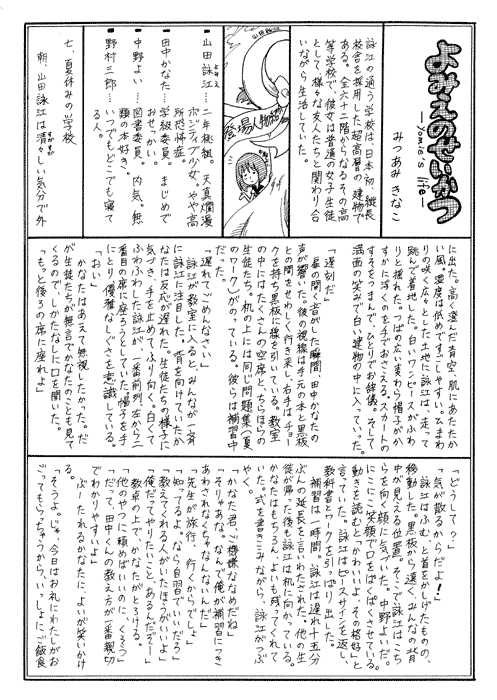 よみえのせいかつ
―Yomie's life―
みつあみ きなこ
詠江の通う学校は、日本初、縦長
校舎を採用した超高層の建物で
ある。全六十二階からなるその高
等学校で、彼女は普通の女子生徒
として、様々な友人たちと関わり合
いながら生活していた。
登場人物紹介
山田詠江…二年桃組。天真爛漫
ポジティブ少女。やや高
所恐怖症。
田中かなた…学級委員。まじめで
おせっかい。
中野よい…図書委員。内気。無
類の本好き。
野村三郎…いつでもどこでも寝て
る人。
七、夏休みの学校
朝、山田詠江は清々しい気分で外
に出た。高く澄んだ青空、肌にあたたか
い風。湿度は低めですごしやすい。ひまわ
りの咲く広々とした土地に詠江は、走って
跳んで着地した。白いワンピースがふわ
りと揺れた。つばの広い麦わら帽子がか
すかに浮くのを手でおさえる。スカートの
すそをつまんで、ひとりでお辞儀。そして
満面の笑みで白い建物の中に入っていった。
「遅刻だ」
扉の開く音がした瞬間、田中かなたの
声が響いた。彼の視線は手元の本と黒板
との間をせわしく行き来し、右手はチョー
クを持ち黒板に線を引いている。教室
の中にはたくさんの空席と、ちらほらの
生徒たち。机の上には同じ問題集（夏
のワーク）がのっている。彼らは補習中
だった。
「遅れてごめんなさい」
詠江が教室に入ると、みんなが一斉
に詠江に注目した。背を向けていたか
なたは反応が遅れた。生徒たちの様子に
気づき、手を止めてふり向く。白くて
ふわふわした詠江が、一番前列左から二
番目の席に座ろうとしていた。帽子を
にとり、優雅なしぐさを意識している。
「おい」
かなたはあえて無視したかった。だ
が生徒たちが無言でかなたのことも見て
くるので、しかたなしに口を開いた。
「もっと後ろの席に座れよ」
「どうして？」
「気が散るからだよ！」
詠江はふむ、と首をかしげたものの、
移動した。黒板から遠く、みんなの背
中が見える位置。そこで詠江はこち
らを向く顔に気づいた。中野よいだ。
にこにこ笑顔で口をぱくぱくさせている。
動きを読むと「かわいいよ、その格好」と
言っていた。詠江はピースサインを返し、
教科書とワークを引っぱり出した。
補習は一時間。詠江は遅れ十五分
ぶんの延長を言いわたされた。他の生
徒が帰った後も詠江は机に向かっている。
かなたはもちろん、よいも残ってくれて
いた。式を書きこみながら、詠江がつぶ
やく。
「かなた君、ご機嫌ななめだね」
「そりゃあな。なんで俺が補習につき
あわされなくちゃなんないんだ」
「先生が旅行、行くからでしょ」
「知ってるよ。なら自習でいいだろ」
「教えてくれる人がいたほうがいいよ」
「俺だってやりたいこと、あるんだぞー」
教卓の上で、かなたがとろける。
「他のやつに頼めばいいのに、くそうっ」
「だって、田中くんの教え方が一番親切
でわかりやすいよ」
ぶーたれるかなたに、よいが笑いかけ
る。
「そうよ。じゃ、今日はお礼にわたしがお
ごってもらっちゃうから。いっしょにご飯食